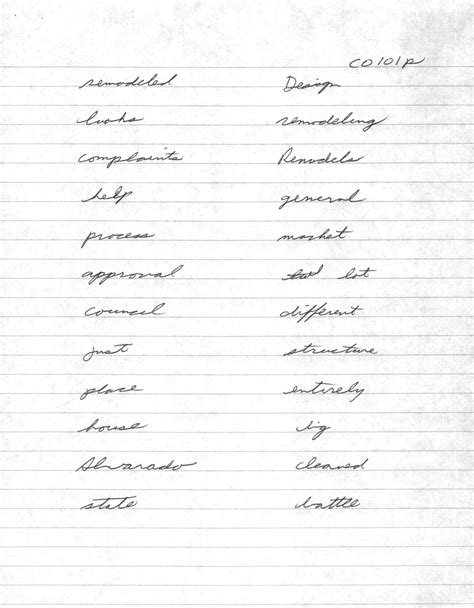 CO101p
remodeled Design
looks remodeling
complaints Remodels
help general
process market
approval lot
council different
just structure
place entirely
house big
Alvarado cleaned
state battle